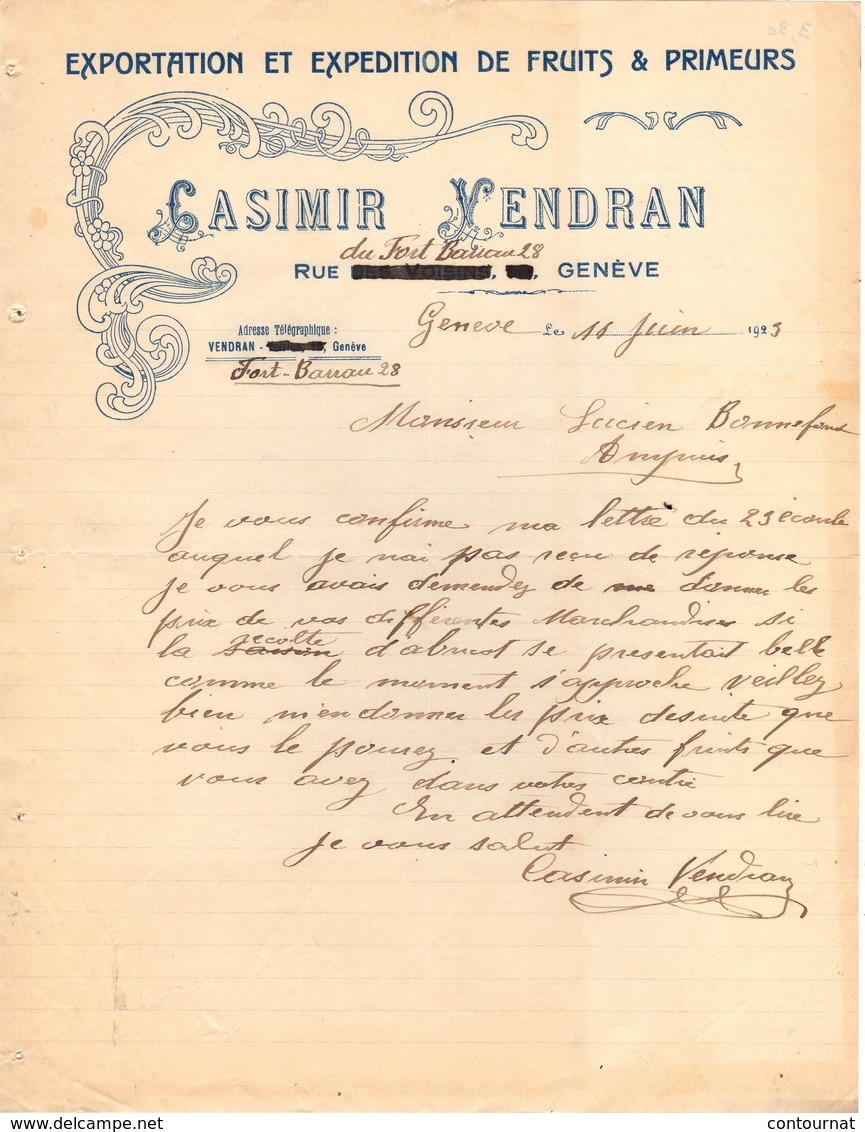 3,30
EXPORTATION ET EXPEDITION DE FRUITS & PRIMEURS
CASIMIR VENDRAN
du Fort Barrau 28
RUE DES VOISINS, GENÈVE
Adresse Télégraphique :
VENDRAN - Genève
Fort-Barrau 28
Geneve Le 11 Juin 1923
Monsieur Lucien Bonnefond
Ampuis
Je vous confirme ma lettre du 23 écoule
auquel je n'ai pas reçu de réponse
je vous avais demendez de me donner les
prix de vos différentes Marchandises si
la saison recolte d'abricot se presentait belle
comme le moment s'approche veillez
bien m'en donner les prix desuite que
vous le pourez et d'autres fruits que
vous avez dans votre contré
En attendent de vous lire
Je vous salut
Casimir Vendran
© contournat